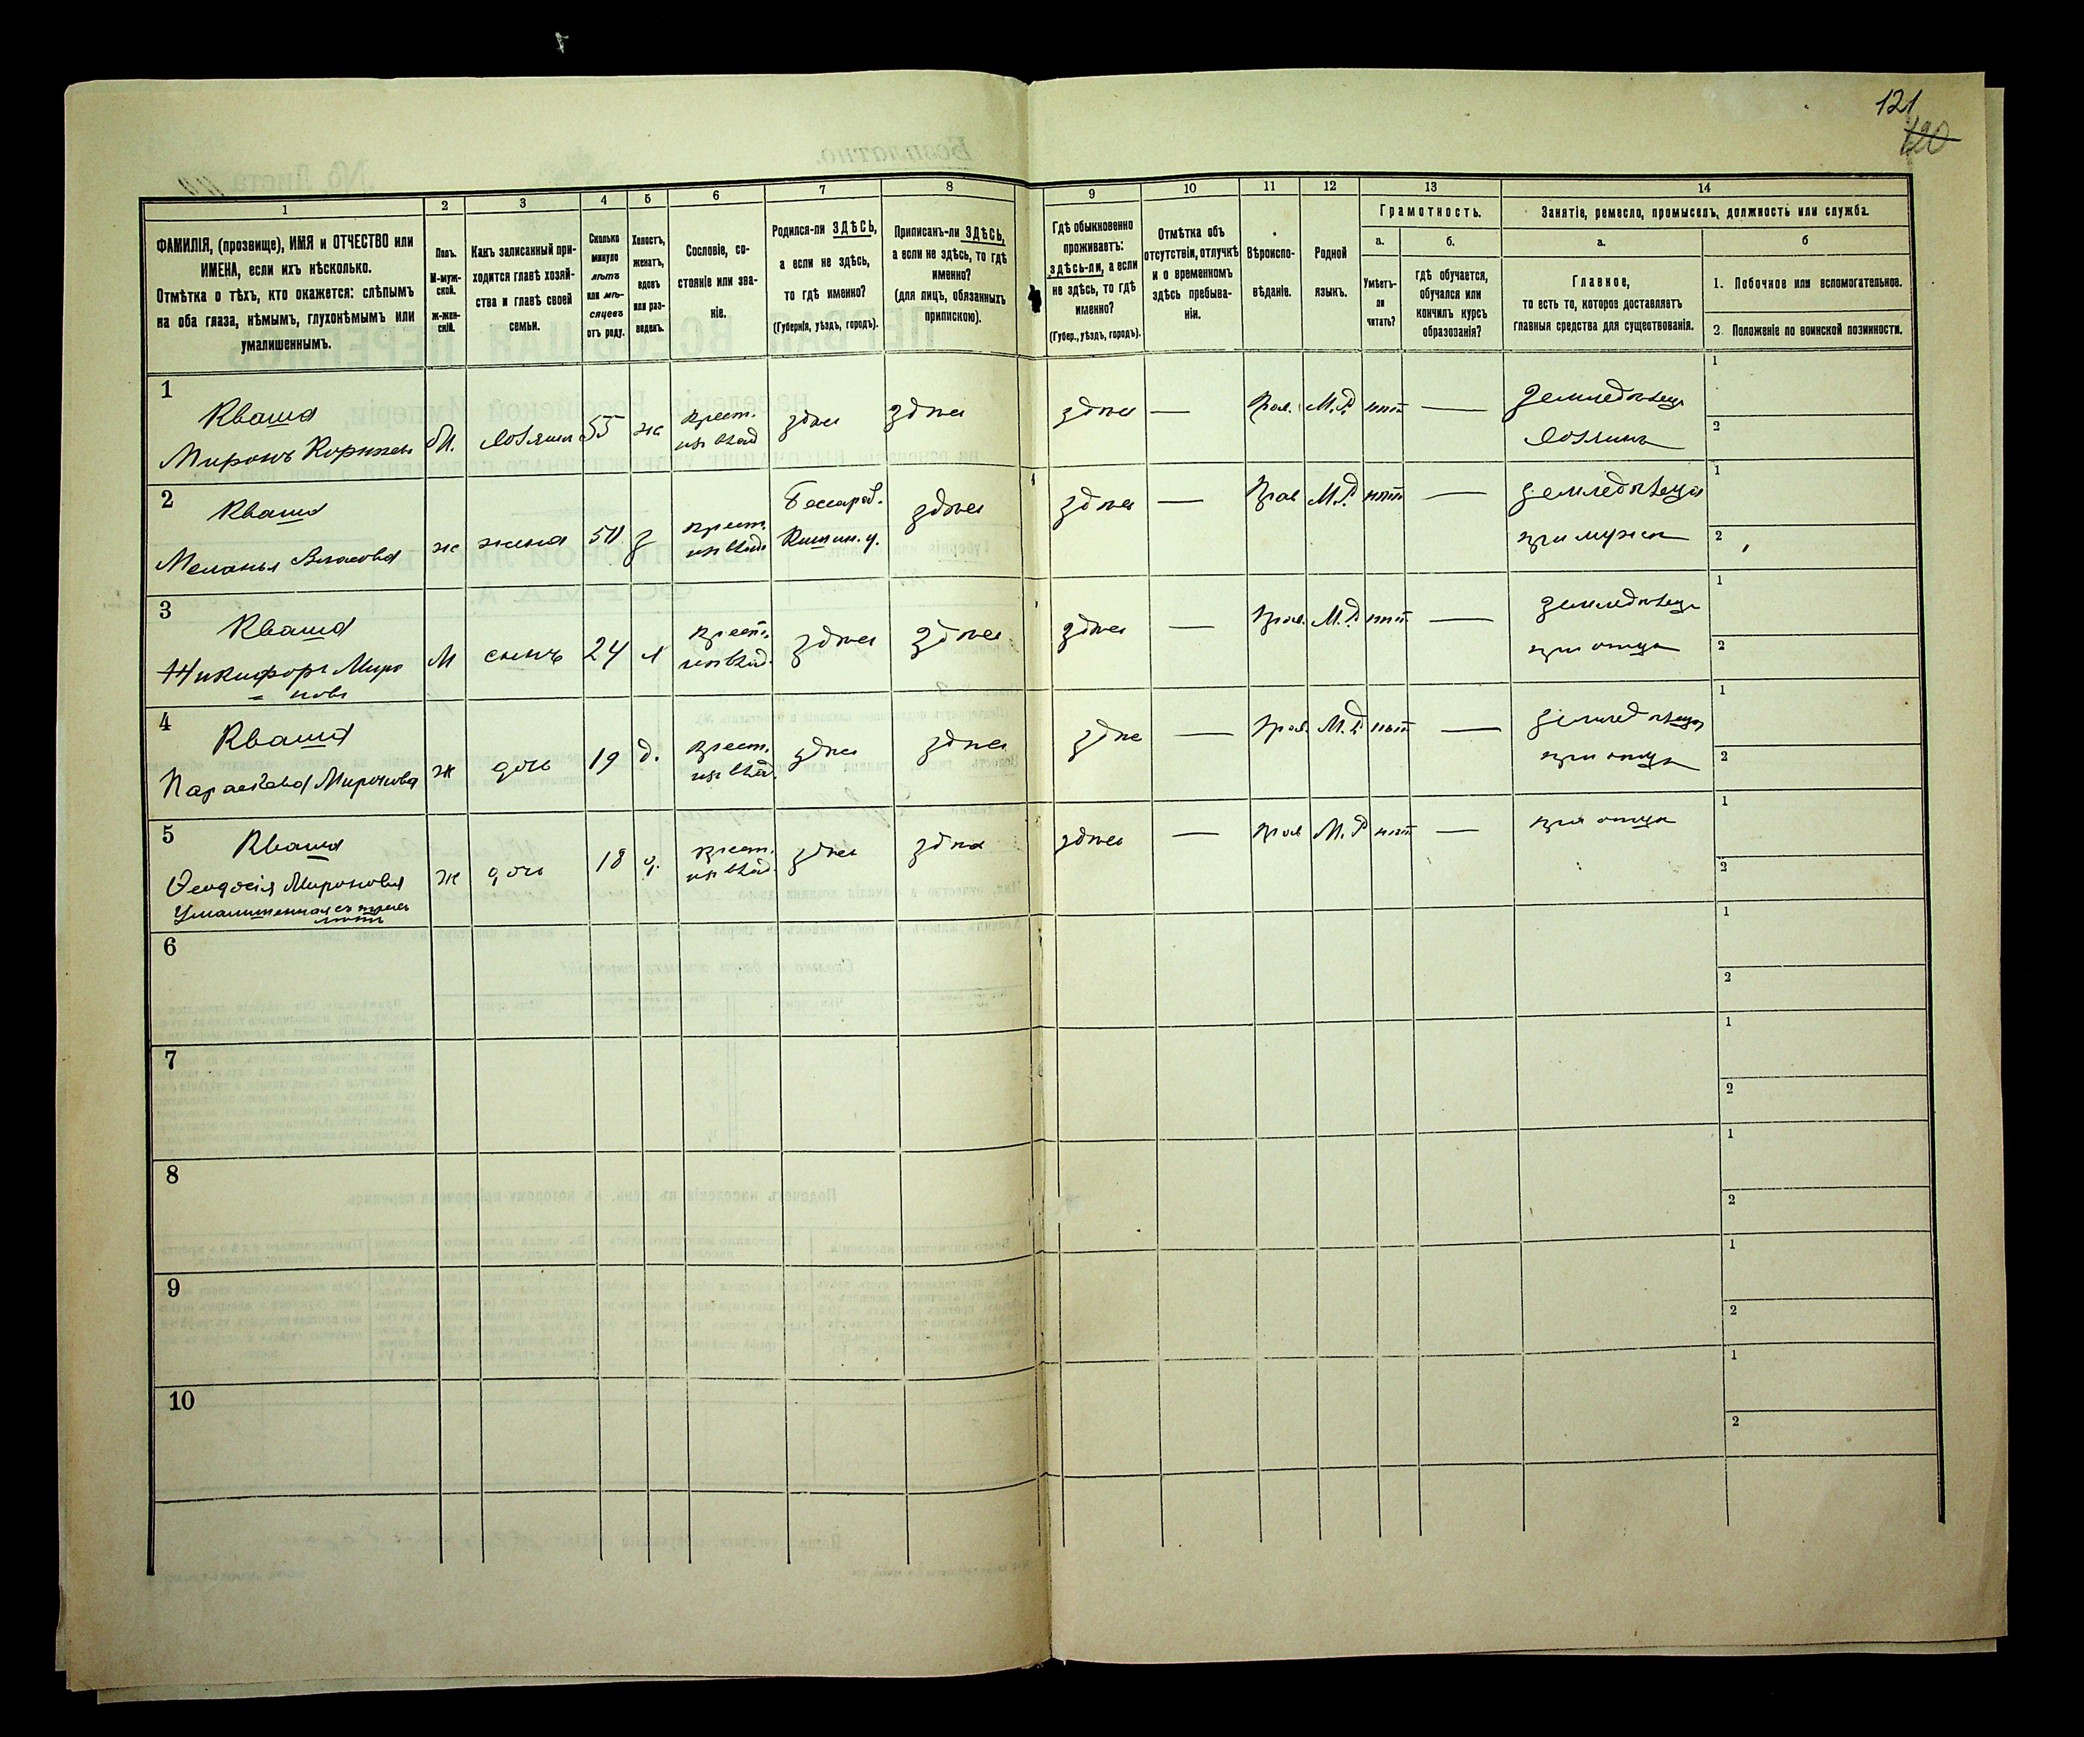 121
120
1
2
3
4
5
6
7
8
9
10
11
12
13
14
ФАМИЛІЯ, (прозвище), ИМЯ и ОТЧЕСТВО или
ИМЕНА, если ихъ нѣсколько.
Отмѣтка о тѣхъ, кто окажется: слѣпымъ
на оба глаза, нѣмымъ, глухонѣмымъ или
умалишеннымъ.
Полъ.
М-муж-
ской.
ж-жен-
скій.
Какъ записанный при-
ходится главѣ хозяй-
ства и главѣ своей
семьи.
Сколько
минуло
лѣтъ
или мѣ-
сяцевъ
отъ роду.
Холостъ,
женатъ,
вдовъ
или раз-
веденъ.
Сословіе, со-
стояніе или зва-
ніе.
Родился-ли ЗДѢСЬ,
а если не здѣсь,
то гдѣ именно?
(Губернія, уѣздъ, городъ).
Приписанъ-ли ЗДѢСЬ,
а если не здѣсь, то гдѣ
именно?
(для лицъ, обязанныхъ
припискою).
Гдѣ обыкновенно
проживаетъ:
здѣсь-ли, а если
не здѣсь, то гдѣ
именно?
(Губер., уѣздъ, городъ).
Отмѣтка объ
отсутствіи, отлучкѣ
и о временномъ
здѣсь пребыва-
ніи.
Вѣроиспо-
вѣданіе.
Родной
языкъ.
Грамотность.
а.
Умѣетъ-
ли
читать?
б.
гдѣ обучается,
обучался или
кончилъ курсъ
образованія?
Занятіе, ремесло, промыселъ, должность или служба.
а.
Главное,
то есть то, которое доставляетъ
главныя средства для существованія.
б
1. Побочное или вспомогательное.
2. Положеніе по воинской повинности.
1
Кваша
Миронъ Корнѣевъ
М. хозяинъ 55 ж
крест.
изъ влад
здѣсь здѣсь здѣсь — Прав. М.Р. нѣт —
Земледѣлецъ
хозяинъ
1
2
2
Кваша
Меланья Власова
ж жена 50 з
крест.
изъ влад.
Бессараб.
Кишин. у.
здѣсь здѣсь — Прав М.Р нѣт —
земледѣлецъ
при мужѣ
1
2
3
Кваша
Никифоръ Миро
= новъ
М сынъ 24 х
крест.
изъ влад.
здѣсь здѣсь здѣсь — Прав. М.Р нѣт —
земледѣлецъ
при отцѣ
1
2
4
Кваша
Параскева Миронова
ж дочь 19 д.
крест.
изъ влад.
здѣсь здѣсь здѣсь — Прав. М.Р нѣт —
земледѣлецъ
при отцѣ
1
2
5
Кваша
Ѳеодосія Миронова
Умалишенная съ трехъ
лѣтъ
ж дочь 18 д.
крест.
изъ влад.
здѣсь здѣсь здѣсь — Прав М.Р нѣт —
при отцѣ
1
2
6
1
2
7
1
2
8
1
2
9
1
2
10
1
2